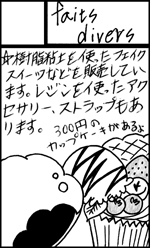 faits
divers
樹脂粘土を使ったフェイク
スイーツなどを販売してい
ます。レジンを使ったアク
セサリー、ストラップもあ
ります。
300円の
カップケーキがあるよ